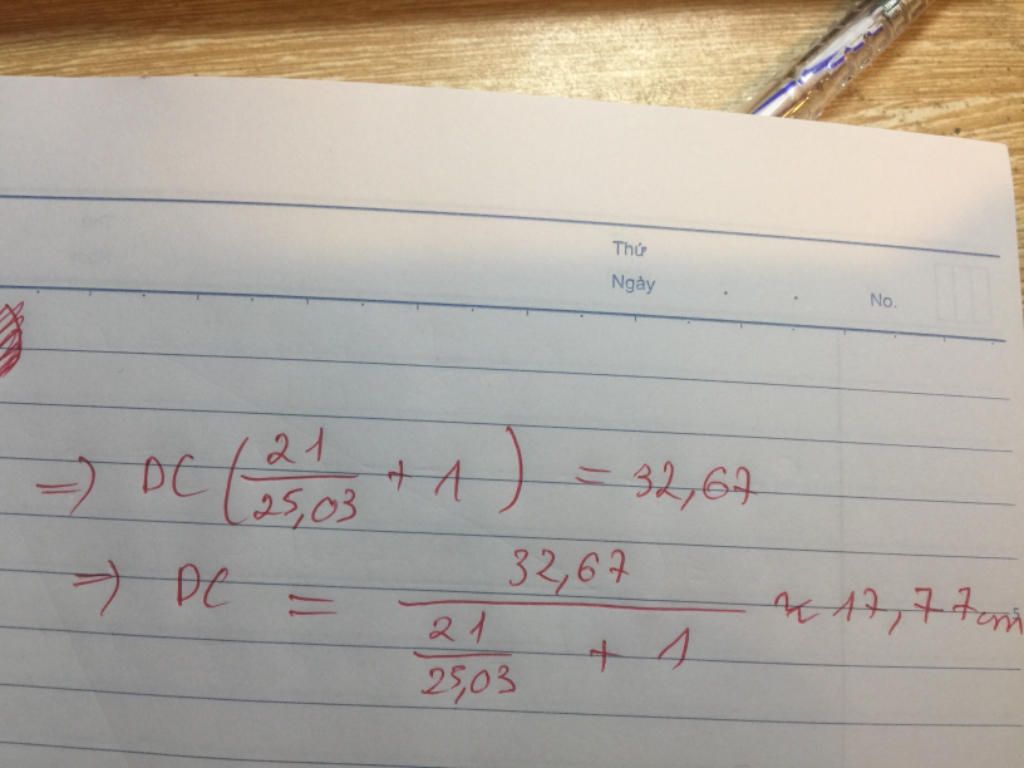 Thứ
Ngày . . No.
=> DC (21/25,03 + 1) = 32,67
=> DC = 32,67 / (21/25,03 + 1) ≈ 17,77cm